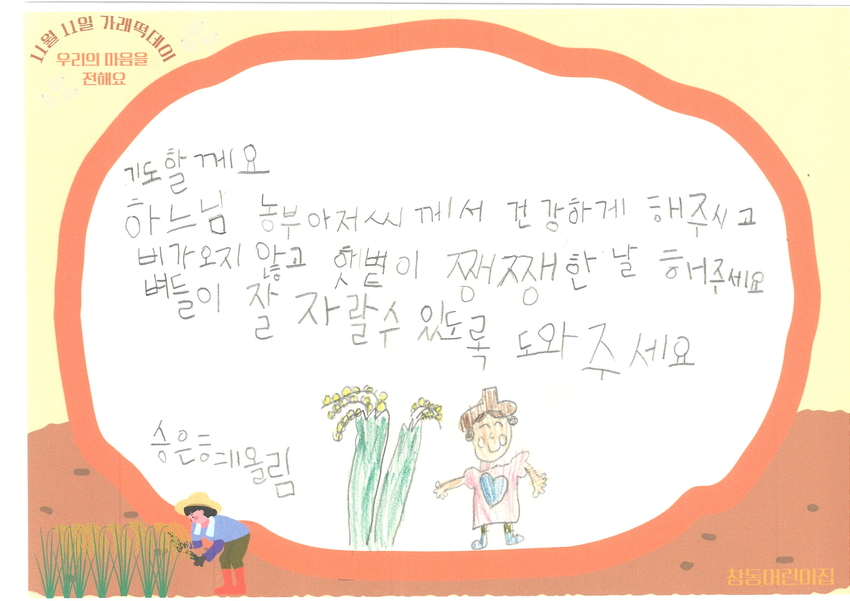 11월 11일 가래떡데이
우리의 마음을
전해요
기도할께요
하느님 농부아저씨께서 건강하게 해주시고
비가오지 않고 햇볕이 쨍쨍한 날 해주세요
벼들이 잘 자랄수 있도록 도와주세요
송은혜올림
참동어린이집